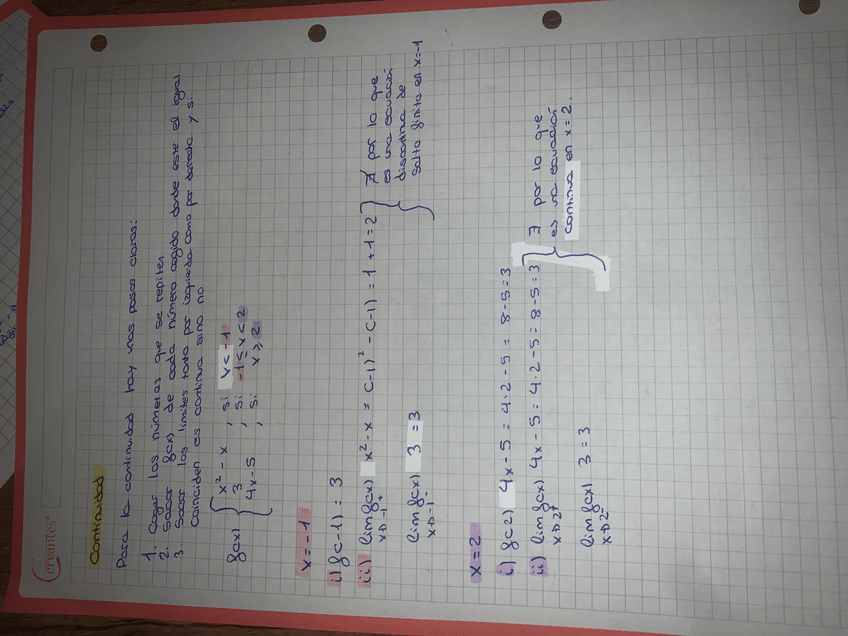 Cervantes
Continuidad
Para la continuidad hay unos pasos claros:
1. Coger los números que se repiten
2. Sacar f(x) de cada número cogido donde este el igual
3. Sacar los limites tanto por izquierda como por derecha y si
coinciden es continua sino no
f(x) { x² - x , si x < -1
3 , si -1 ≤ x < 2
4x - 5 , si x ≥ 2
x = -1
i) f(-1) = 3
ii) lim f(x) x² - x = (-1)² - (-1) = 1 + 1 = 2
x→-1⁺
lim f(x) 3 = 3
x→-1⁻
∄ por lo que
es una ecuación
discontinua de
salto finito en x=-1
x = 2
i) f(2) 4x - 5 = 4·2 - 5 = 8 - 5 = 3
ii) lim f(x) 4x - 5 = 4·2 - 5 = 8 - 5 = 3
x→2⁺
lim f(x) 3 = 3
x→2⁻
∃ por lo que
es una ecuación
continua en x = 2.